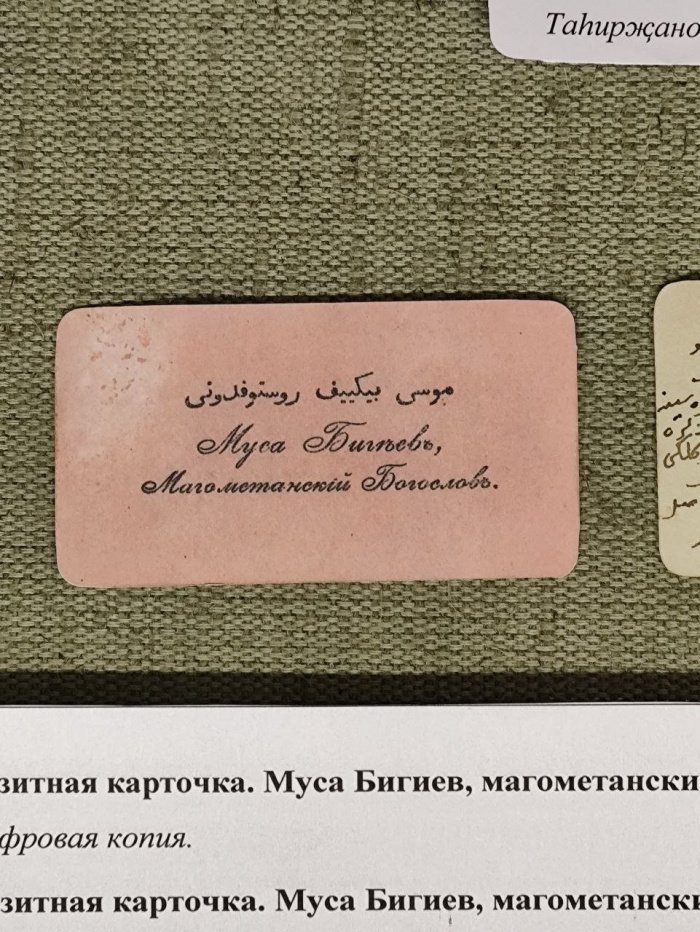 Таһирҗано
موسى بيكييف روستوفدونى
Муса Бигѣевъ,
Магометанскій Богословъ.
зитная карточка. Муса Бигиев, магометански
фровая копия.
зитная карточка. Муса Бигиев, магометанск